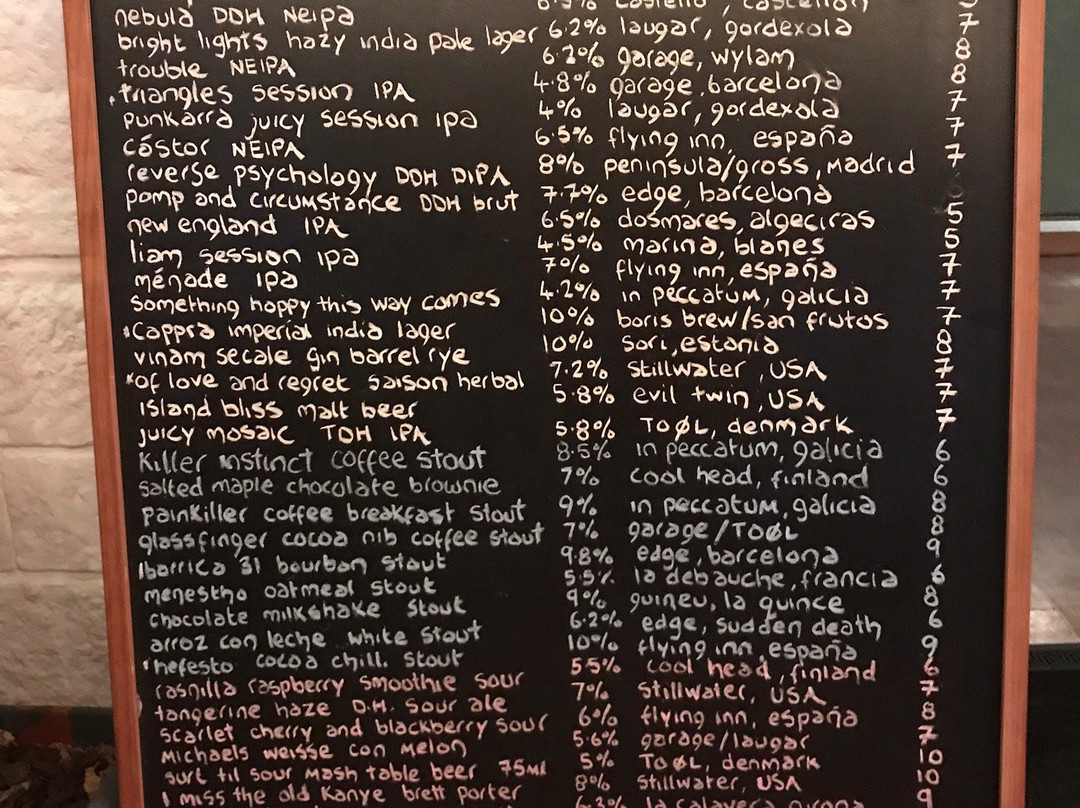 nebula DDH NEIPA
bright lights hazy india pale lager 6.2% laugar, gordexola 7
trouble NEIPA 6.2% garage, wylam 8
triangles session IPA 4.8% garage, barcelona 8
punkarra juicy session ipa 4% laugar, gordexola 7
cástor NEIPA 6.5% flying inn, españa 7
reverse psychology DDH DIPA 8% peninsula/gross, Madrid 7
pomp and circumstance DDH brut 7.7% edge, barcelona
new england IPA 6.5% dosmares, algeciras 5
liam session ipa 4.5% marina, blanes 5
ménade ipa 7% flying inn, españa 7
something hoppy this way comes 4.2% in peccatum, galicia 7
*cappra imperial india lager 10% boris brew/san frutos 7
vinam secale gin barrel rye 10% sori, estonia 8
*of love and regret saison herbal 7.2% stillwater, USA 7
island bliss malt beer 5.8% evil twin, USA 7
juicy mosaic TDH IPA 5.8% TOØL, denmark 7
killer instinct coffee stout 8.5% in peccatum, galicia 6
salted maple chocolate brownie 7% cool head, finland 6
painkiller coffee breakfast stout 9% in peccatum, galicia 8
glassfinger cocoa nib coffee stout 7% garage/TOØL 8
ibarrica 31 bourbon stout 9.8% edge, barcelona 9
menestho oatmeal stout 5.5% la debauche, francia 6
chocolate milkshake stout 9% guineu, la quince 8
arroz con leche white stout 6.2% edge, sudden death 6
hefesto cocoa chill. stout 10% flying inn, españa 9
rasnilla raspberry smoothie sour 5.5% cool head, finland 6
tangerine haze D.H. sour ale 7% stillwater, USA 7
scarlet cherry and blackberry sour 6% flying inn, españa 8
michaels weisse con melon 5.6% garage/laugar 7
surt til sour mash table beer 75ml 5% TOØL, denmark 10
I miss the old Kanye brett porter 8% stillwater, USA 10
la calavera, girona 9